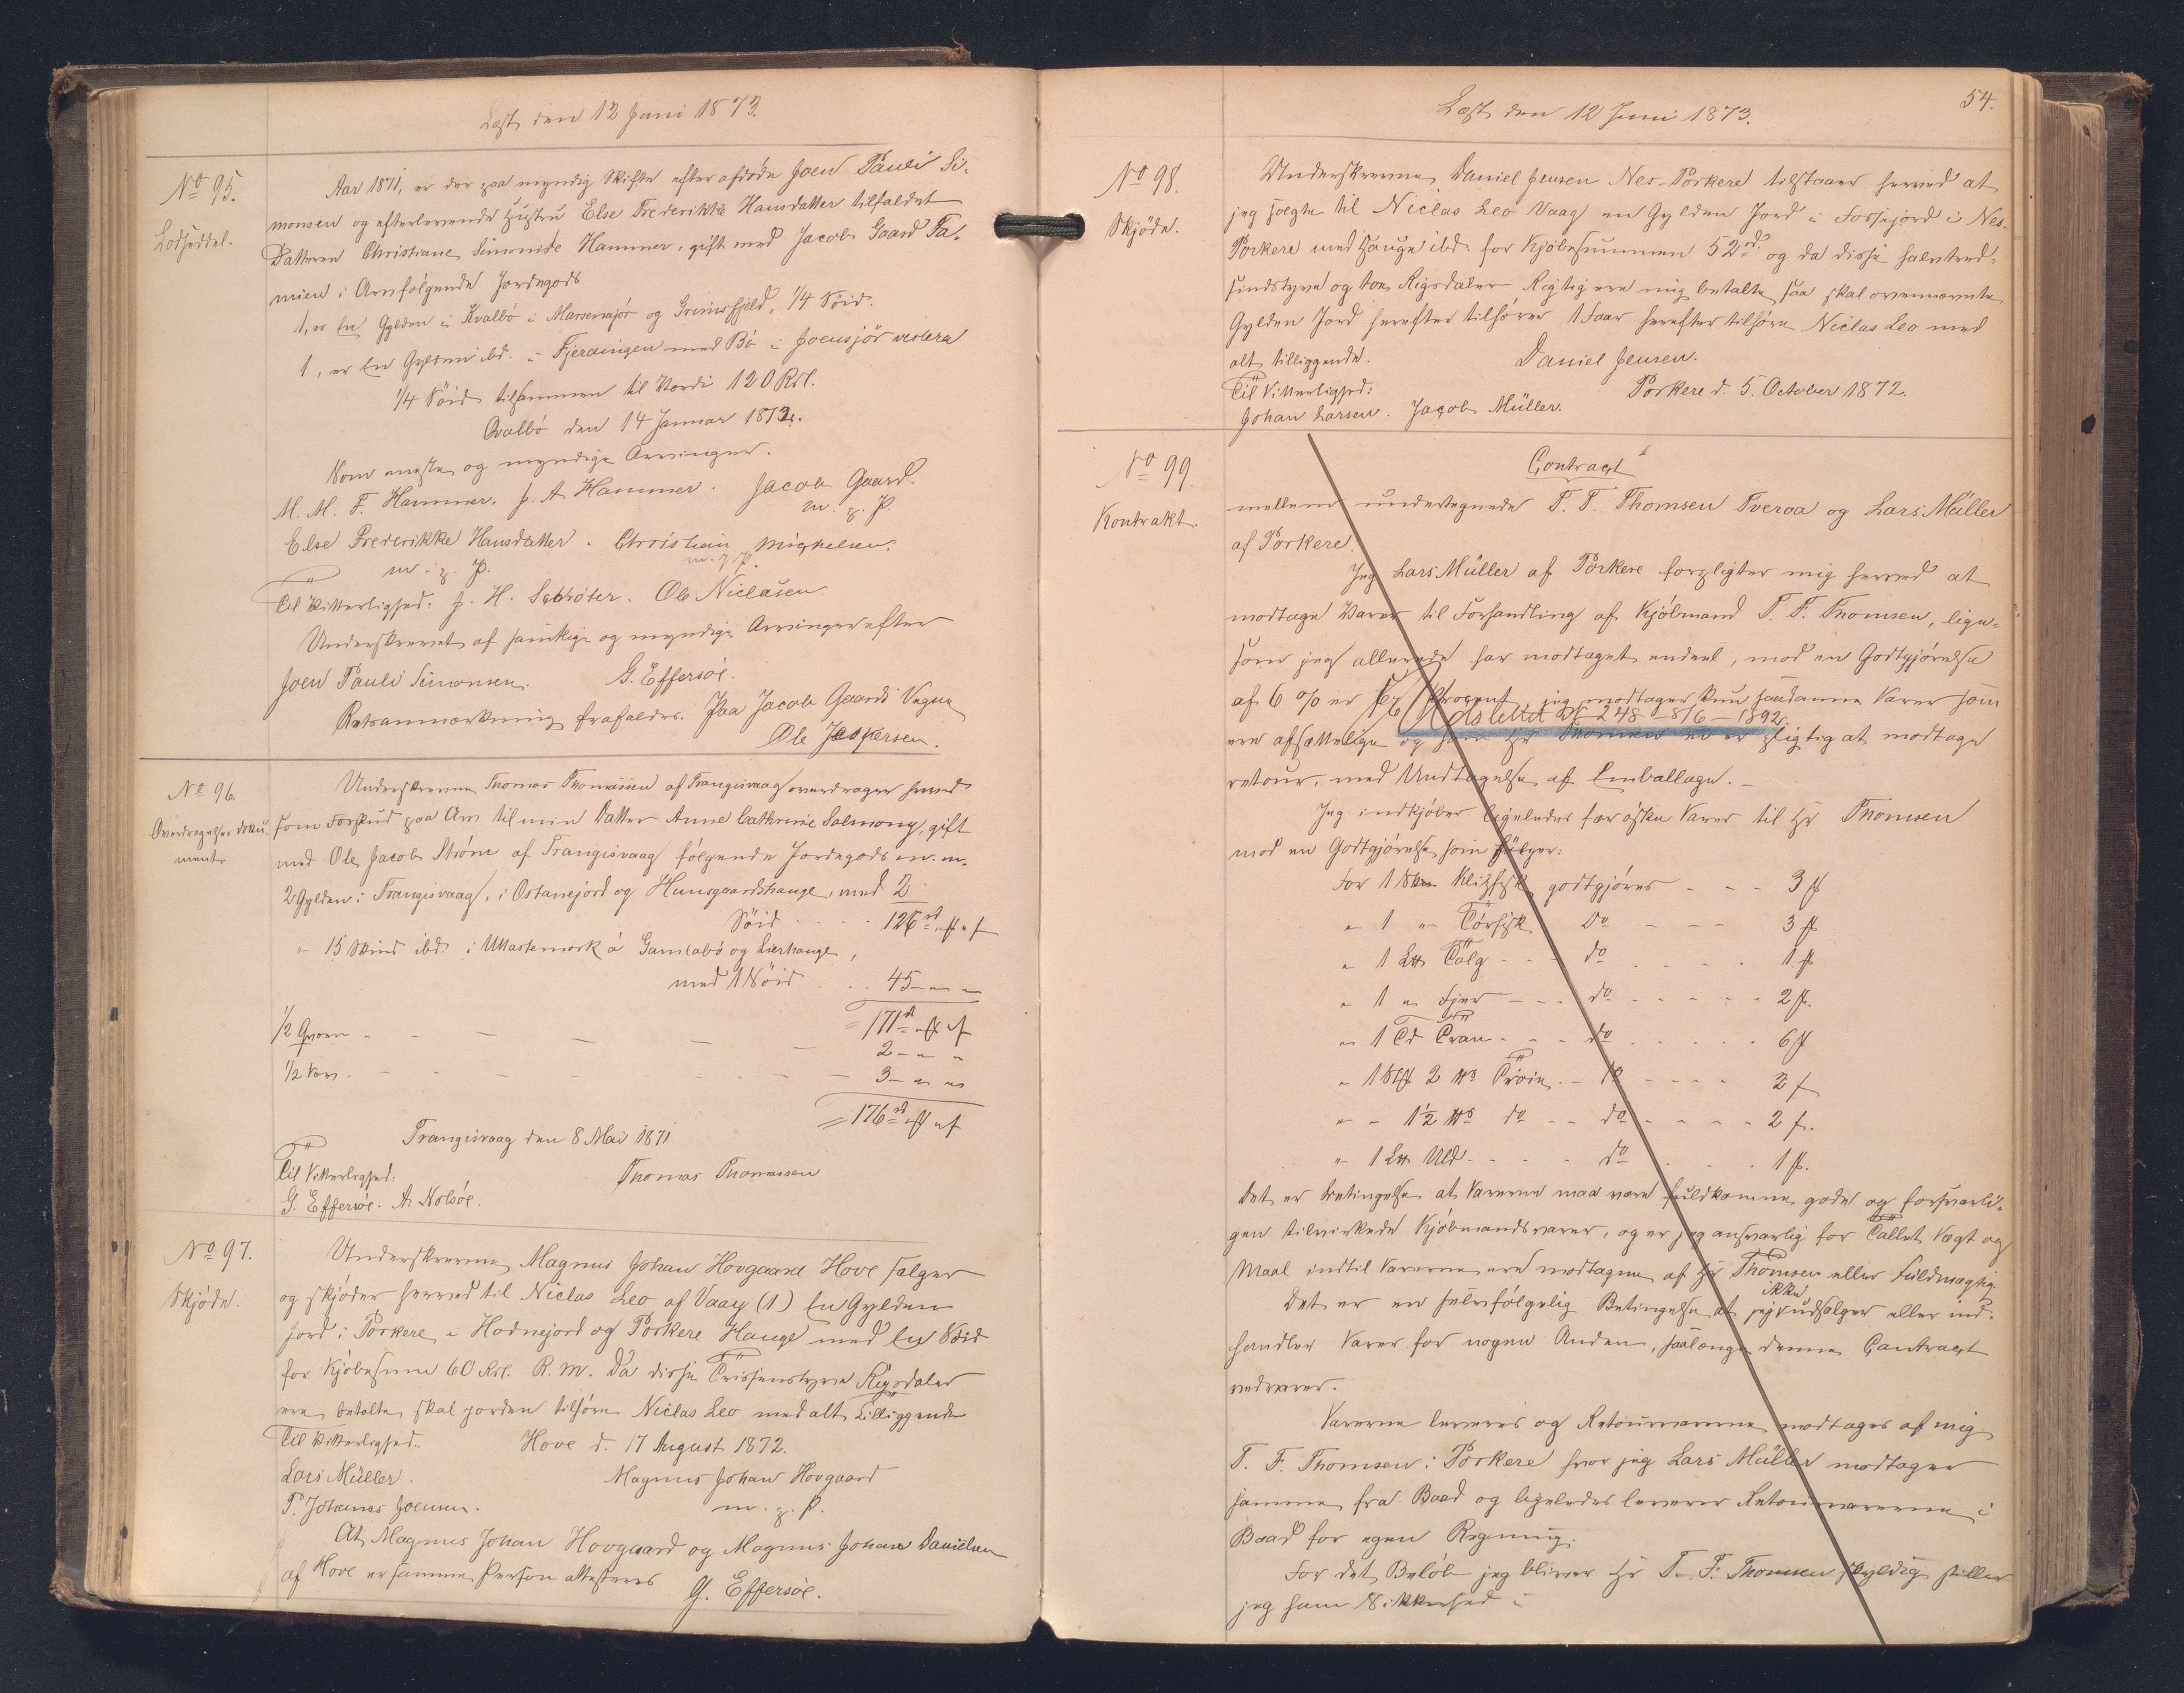 Læst den 12 Juni 1873.
No 95.
Lodseddel.
Aar 1871, er der paa myndig Skifte efter afdøde Joen Pauli Si-
monsen og efterlevende Hustru Else Frederikke Hansdatter tilfaldet
Datteren Christiane Simonide Hammer, gift med Jacob Gaard Fa-
mien i Arv følgende Jordegods
1, er En Gylden i Kvalbö i Marsenajør og Grimsfjeld, 1/4 Söid.
1, er En Gylden ibd. i Fjerdingen med Bö i Joensjør vestera
1/4 Söid tilsammen til Værdi 120 Rdl.
Qvalbö den 14 Januar 1872.
Som eneste og myndige Arvinger.
M. M. F. Hammer. J. A. Hammer. Jacob Gaard.
m. p. P.
Else Frederikke Hansdatter. Christian Mighelsen.
m. p. P. m. p. P.
Til Vitterlighed: J. H. Schrøter. Ole Niclasen.
Underskrevet af samtlige og myndige Arvinger efter
Joen Pauli Simonsen. G. Effersöe.
Retsanmærkning frafaldes. Paa Jacob Gaards Vegne
Ole Jespersen.
No 96.
Overdragelses doku-
ment.
Underskrevne Thomas Thomassen af Trangisvaag overdrager herved
som Forskud paa Arv til min Datter Anne Cathrine Salmony, gift
med Ole Jacob Strøm af Trangisvaag følgende Jordegods n. m.
2 Gylden i Trangisvaag, i Ostanejord og Hunsgaardshauge, med 2
Söid - - - 126 rd „ ß „ f
" 15 Skind ibd. i Uttastemork á Gamlabø og Lierhauge,
med 1 Söid . . 45 - " "
= 171 rd „ ß „ f
1/2 Qværn - - - - 2 - " "
1/2 - - - - 3 - " "
= 176 rd „ ß „ f
Trangisvaag den 8 Mai 1871
Til Vitterlighed: Thomas Thomassen
G. Effersöe. A. Nolsöe.
No 97.
Skjøde.
Underskrevne Magnus Johan Hovgaard Hove sælger
og skjøder herved til Niclas Leo af Vaag (1) En Gylden
Jord i Porkere i Hodnejord og Porkere Hauge med En Söid
for Kjøbesum 60 Rdl. R. M. Da disse Tresindstyve Rigsdaler
ere betalte, skal Jorden tilhøre Niclas Leo med alt Tilliggende
Til Vitterlighed. Hove d. 17 August 1872.
Lars Müller. Magnus Johan Hovgaard
P. Johannes Joensen. m. p. P.
At Magnus Johan Hovgaard og Magnus Johan Danielsen
af Hove er samme Person attesteres
G. Effersöe.
54.
Læst den 12 Juni 1873.
No 98.
Skjøde.
Underskrevne Daniel Jensen Nes-Porkere tilstaaer herved at
jeg solgte til Niclas Leo Vaag en Gylden Jord i Fossejord i Nes-
Porkere med Hauge ibd. for Kjøbesummen 52 rd. og da disse halvtred-
sindstyve og toe Rigsdaler Rigtig ere mig betalte, saa skal ovennævnte
Gylden Jord herefter tilhører 1 Faar herefter tilhøre Niclas Leo med
alt tilliggende. Daniel Jensen.
Til Vitterlighed: Porkere d. 5. October 1872.
Johan Larsen. Jacob Müller.
No 99.
Kontrakt.
Contract
mellem undertegnede T. F. Thomsen Tveraa og Lars Müller
af Porkere.
Jeg Lars Müller af Porkere forpligter mig herved at
modtage Varer til Forhandling af Kjøbmand T. F. Thomsen, lige-
som jeg allerede har modtaget endeel, mod en Godtgjørelse
af 6 % er sex Procent, jeg modtager kun saadanne Varer som
Udslettet 248 - 8/6 - 1892.
ere afsættelige og som Hr Thomsen er pligtig at modtage
retour, med Undtagelse af Emballage. -
Jeg indkjøber ligeledes færøiske Varer til Hr Thomsen
mod en Godtgjørelse som følger:
For 1 Klipfisk godtgjøres - - - 3 ß
" 1 " Törfisk do - - - 3 ß
" 1 L℔ Talg - - - do . . . . 1 ß
" 1 " Fjer - - - do - - - - 2 ß.
" 1 Td Tran - - - do . . . . 6 ß
" 1 Stk 2 ℔ Trøie - do - - - - 3 f
" " 1½ ℔ do - - do - - - - 2 f.
" 1 L℔ Uld - - - - do . . . 1 ß.
Det er Betingelse at Varerne maa være fuldkomne gode og forsvarli-
gen tilvirkede Kjøbmandsvarer, og er jeg ansvarlig for Tallet Vægt og
Maal indtil Varerne ere modtagne af Hr Thomsen eller Fuldmægtig
Det er en selvfølgelig Betingelse at jeg ikke udsælger eller ind-
handler Varer for nogen Anden, saalænge denne Contract
vedvarer.
Varerne leveres og Retourvarerne modtages af mig
T. F. Thomsen i Porkere hvor jeg Lars Müller modtager
samme fra Baad og ligeledes leverer Retourvarerne i
Baad for egen Regning.
For det Beløb jeg bliver Hr T. F. Thomsen skyldig stiller
jeg ham Sikkerhed i